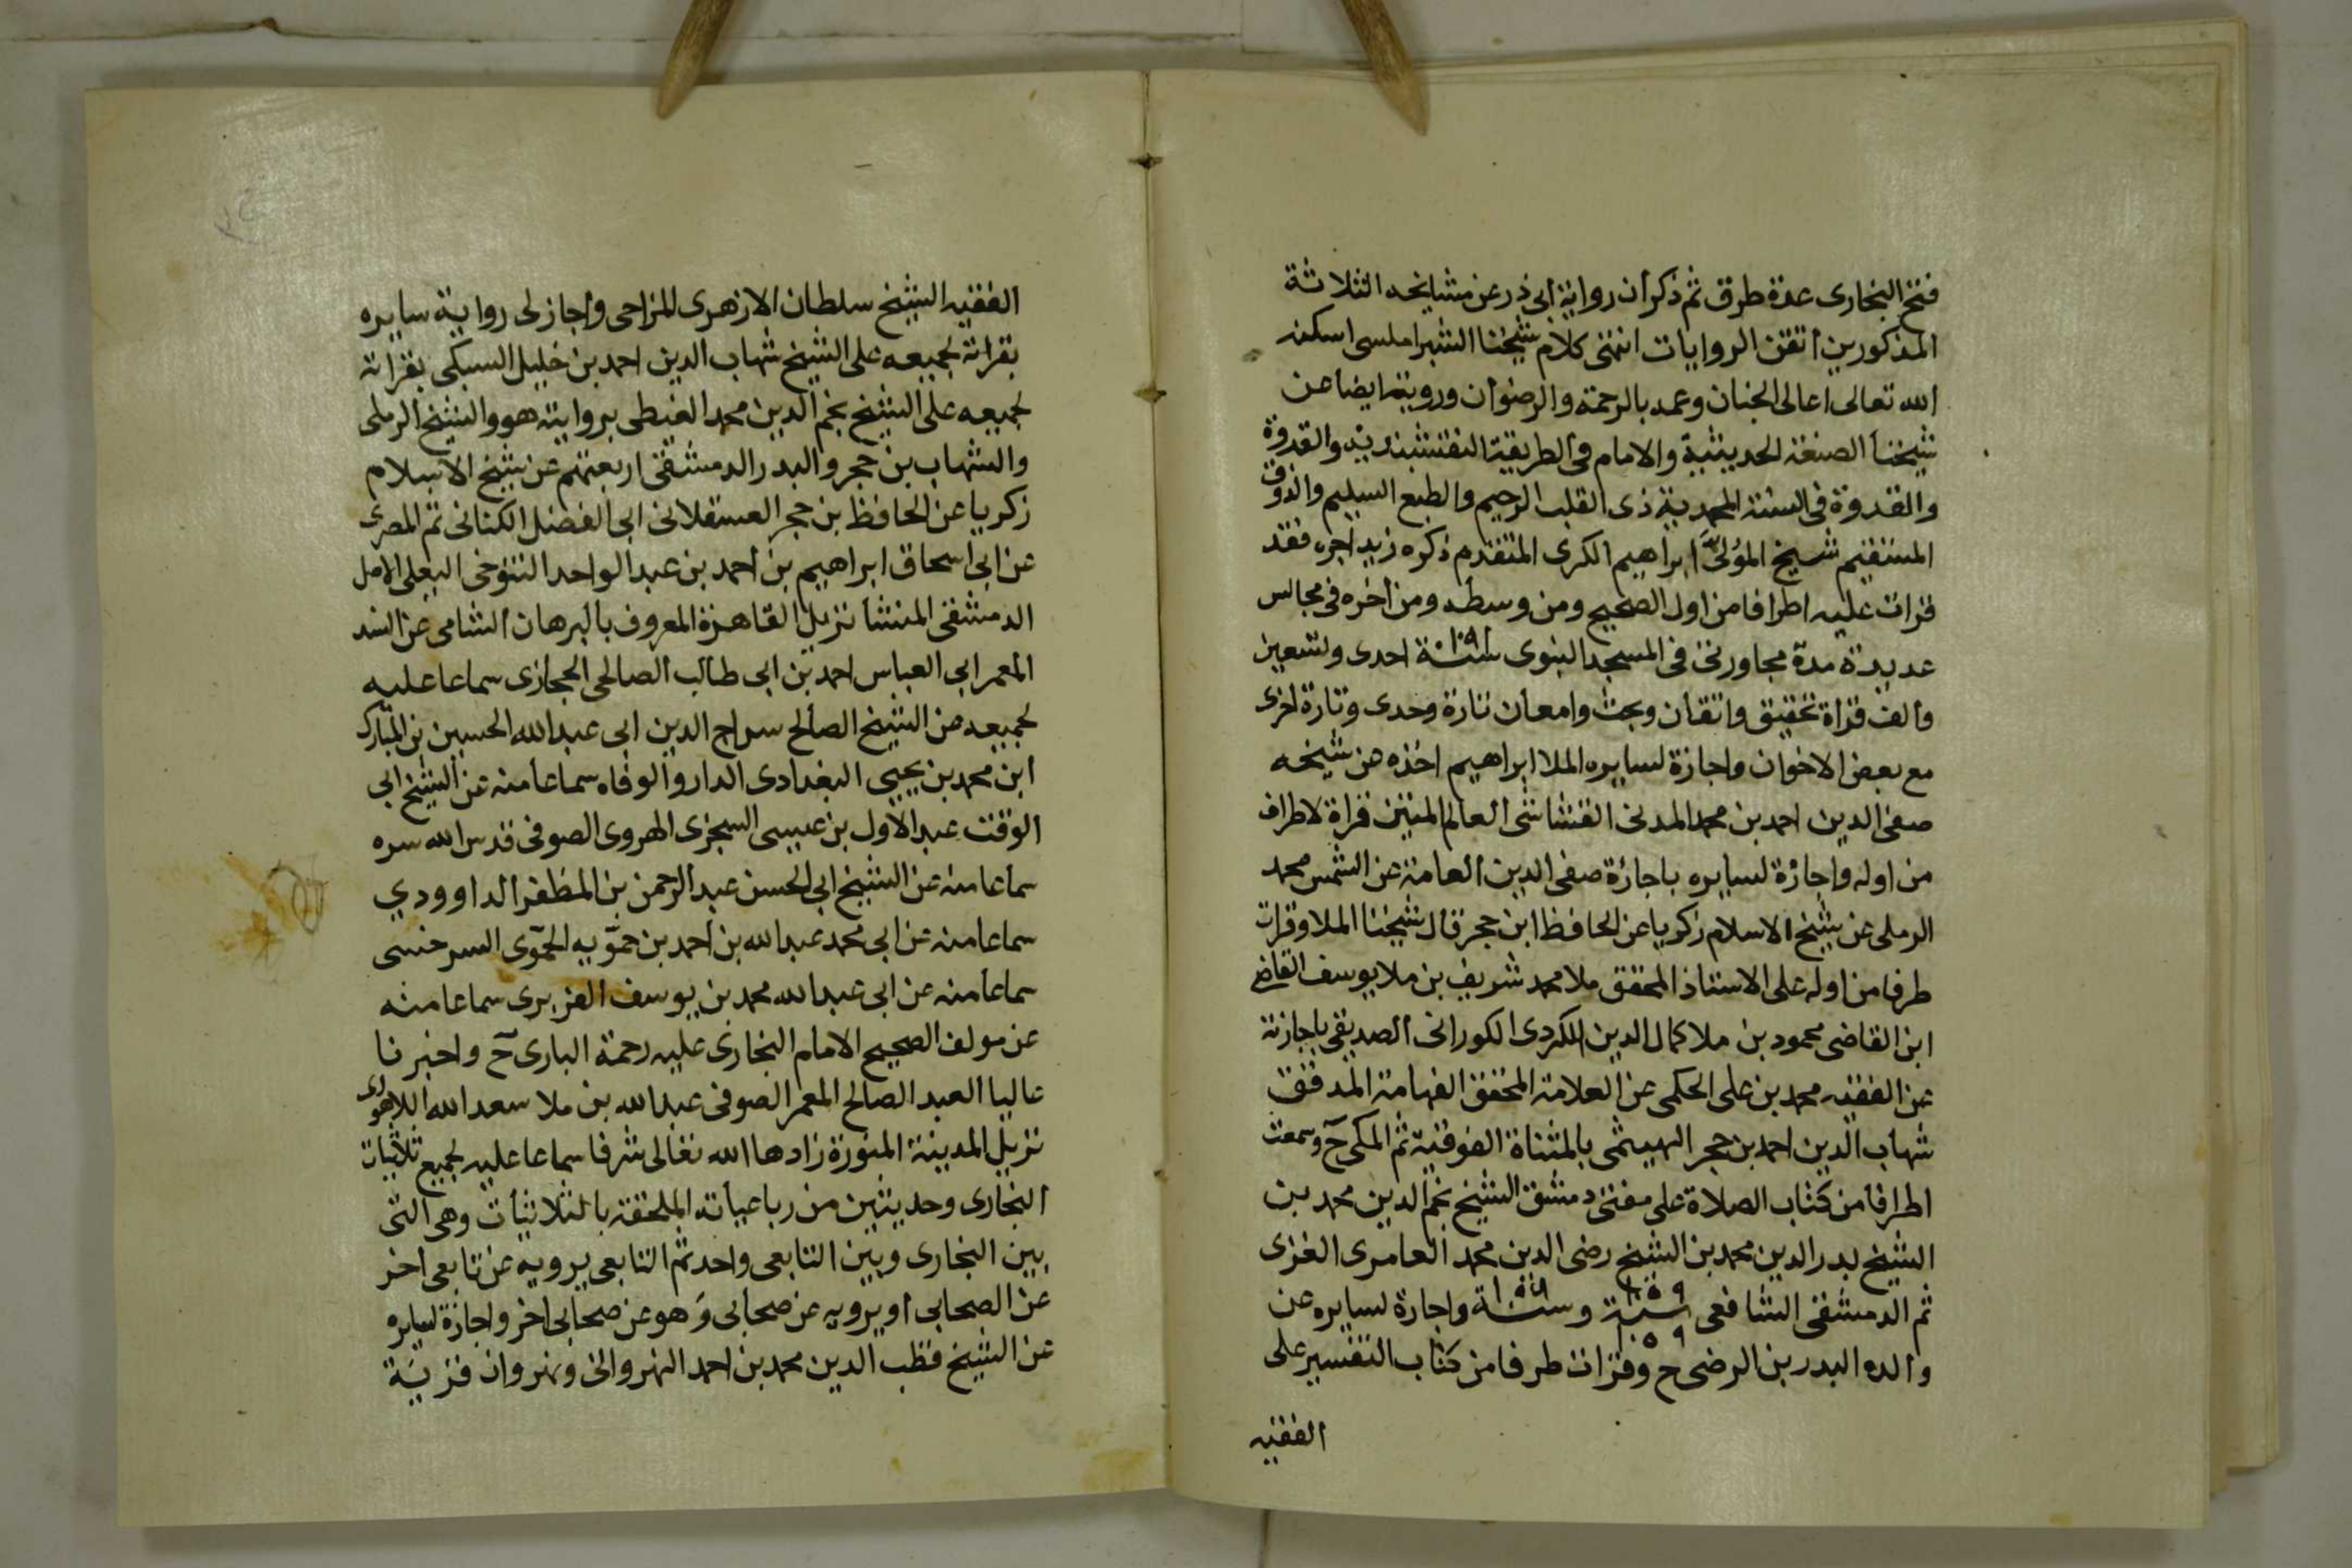 فتح البخارى عدة طرق ثم ذكر أن رواية أبى ذر عن مشايخه الثلاثة
المذكورين أتقن الروايات انتهى كلام شيخنا الشبراملسى اسكنه
الله تعالى اعالى الجنان وعمه بالرحمة والرضوان ورويته ايضا عن
شيخنا الصنعة الحديثية والامام فى الطريقة النقشبندية والقدوة
والقدوة فى السنة المحمدية ذى القلب الرحيم والطبع السليم والذوق
المستقيم شيخ ابراهيم الكردى المتقدم ذكره زيد اجره فقد
قرات عليه اطرافا من اول الصحيح ومن وسطه ومن اخره فى مجالس
عديدة مدة مجاورتى فى المسجد النبوى سنة ١٠٩١ احدى وتسعين
والف قراة تحقيق واتقان وبحث وامعان تارة وحدى وتارة اخرى
مع بعض الاخوان واجازة لسايره الملا ابراهيم اخذه عن شيخه
صفى الدين احمد بن محمد المدنى القشاشى العالم المتين قراة لاطراف
من اوله واجازة لسايره باجازة صفى الدين العامة عن الشمس محمد
الرملى عن شيخ الاسلام زكريا عن الحافظ ابن حجر قال شيخنا الملا وقرات
طرفا من اوله على الاستاذ المحقق ملا محمد شريف بن ملا يوسف القاضى
ابن القاضى محمود بن ملا كمال الدين الكردى الكورانى الصديقى باجازته
عن الفقيه محمد بن على الحكمى عن العلامة المحقق الفهامة المدقق
شهاب الدين احمد بن حجر الهيتمى بالمثناة الفوقية ثم المكى ح وسمعت
اطرافا من كتاب الصلاة على مفتى دمشق الشيخ نجم الدين محمد بن
الشيخ بدر الدين محمد بن الشيخ رضى الدين محمد العامرى الغزى
ثم الدمشقى الشافعى سنة وسنة واجازة لسايره عن
والده البدر بن الرضى ح وقرات طرفا من كتاب التفسير على
الفقيه
الفقيه الشيخ سلطان الازهرى المزاحى واجاز لى رواية سايره
بقراته لجميعه على الشيخ شهاب الدين احمد بن خليل السبكى بقراته
لجميعه على الشيخ نجم الدين محمد الغيطى بروايته هو والشيخ الرملى
والشهاب بن حجر والبدر الدمشقى اربعتهم عن شيخ الاسلام
زكريا عن الحافظ بن حجر العسقلانى ابى الفضل الكنانى ثم المصرى
عن ابى اسحاق ابراهيم بن احمد بن عبد الواحد التنوخى البعلى الاصل
الدمشقى المنشا نزيل القاهرة المعروف بالبرهان الشامى عن
المعمر ابى العباس احمد بن ابى طالب الصالحى الحجازى سماعا عليه
لجميعه عن الشيخ الصالح سراج الدين ابى عبد الله الحسين بن المبارك
ابن محمد بن يحيى البغدادى الدار والوفاه سماعا منه عن الشيخ ابى
الوقت عبد الاول بن عيسى السجزى الهروى الصوفى قدس الله سره
سماعا منه عن الشيخ ابى الحسن عبد الرحمن بن المظفر الداوودي
سماعا منه عن ابى محمد عبد الله بن احمد بن حموّيه الحموّى السرخسى
سماعا منه عن ابى عبد الله محمد بن يوسف الفربرى سماعا منه
عن مولف الصحيح الامام البخارى عليه رحمة البارى ح واخبرنا
عاليا العبد الصالح المعمر الصوفى عبد الله بن ملا سعد الله اللاهورى
نزيل المدينة المنورة زادها الله تعالى شرفا سماعا عليه لجميع ثلاثيات
البخارى وحديثين من رباعياته الملحقة بالثلاثيات وهى التى
بين البخارى وبين التابعى واحد ثم التابعى يرويه عن تابعى اخر
عن الصحابى أو يرويه عن صحابى وَهو عن صحابى اخر واجازة لسايره
عن الشيخ قطب الدين محمد بن احمد النهروالى ونهروان قرية